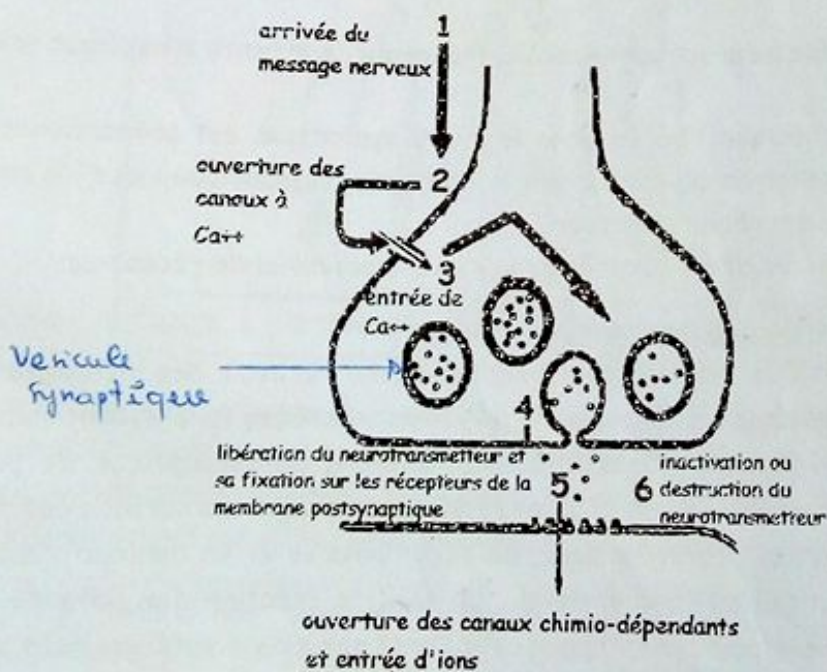 1
arrivée du
message nerveux
2
ouverture des
canaux à
Ca++
3
entrée de
Ca++
Vesicule
Synaptique
4
libération du neurotransmetteur et
sa fixation sur les récepteurs de la
membrane postsynaptique
5
6
inactivation ou
destruction du
neurotransmetteur
ouverture des canaux chimio-dépendants
et entrée d'ions